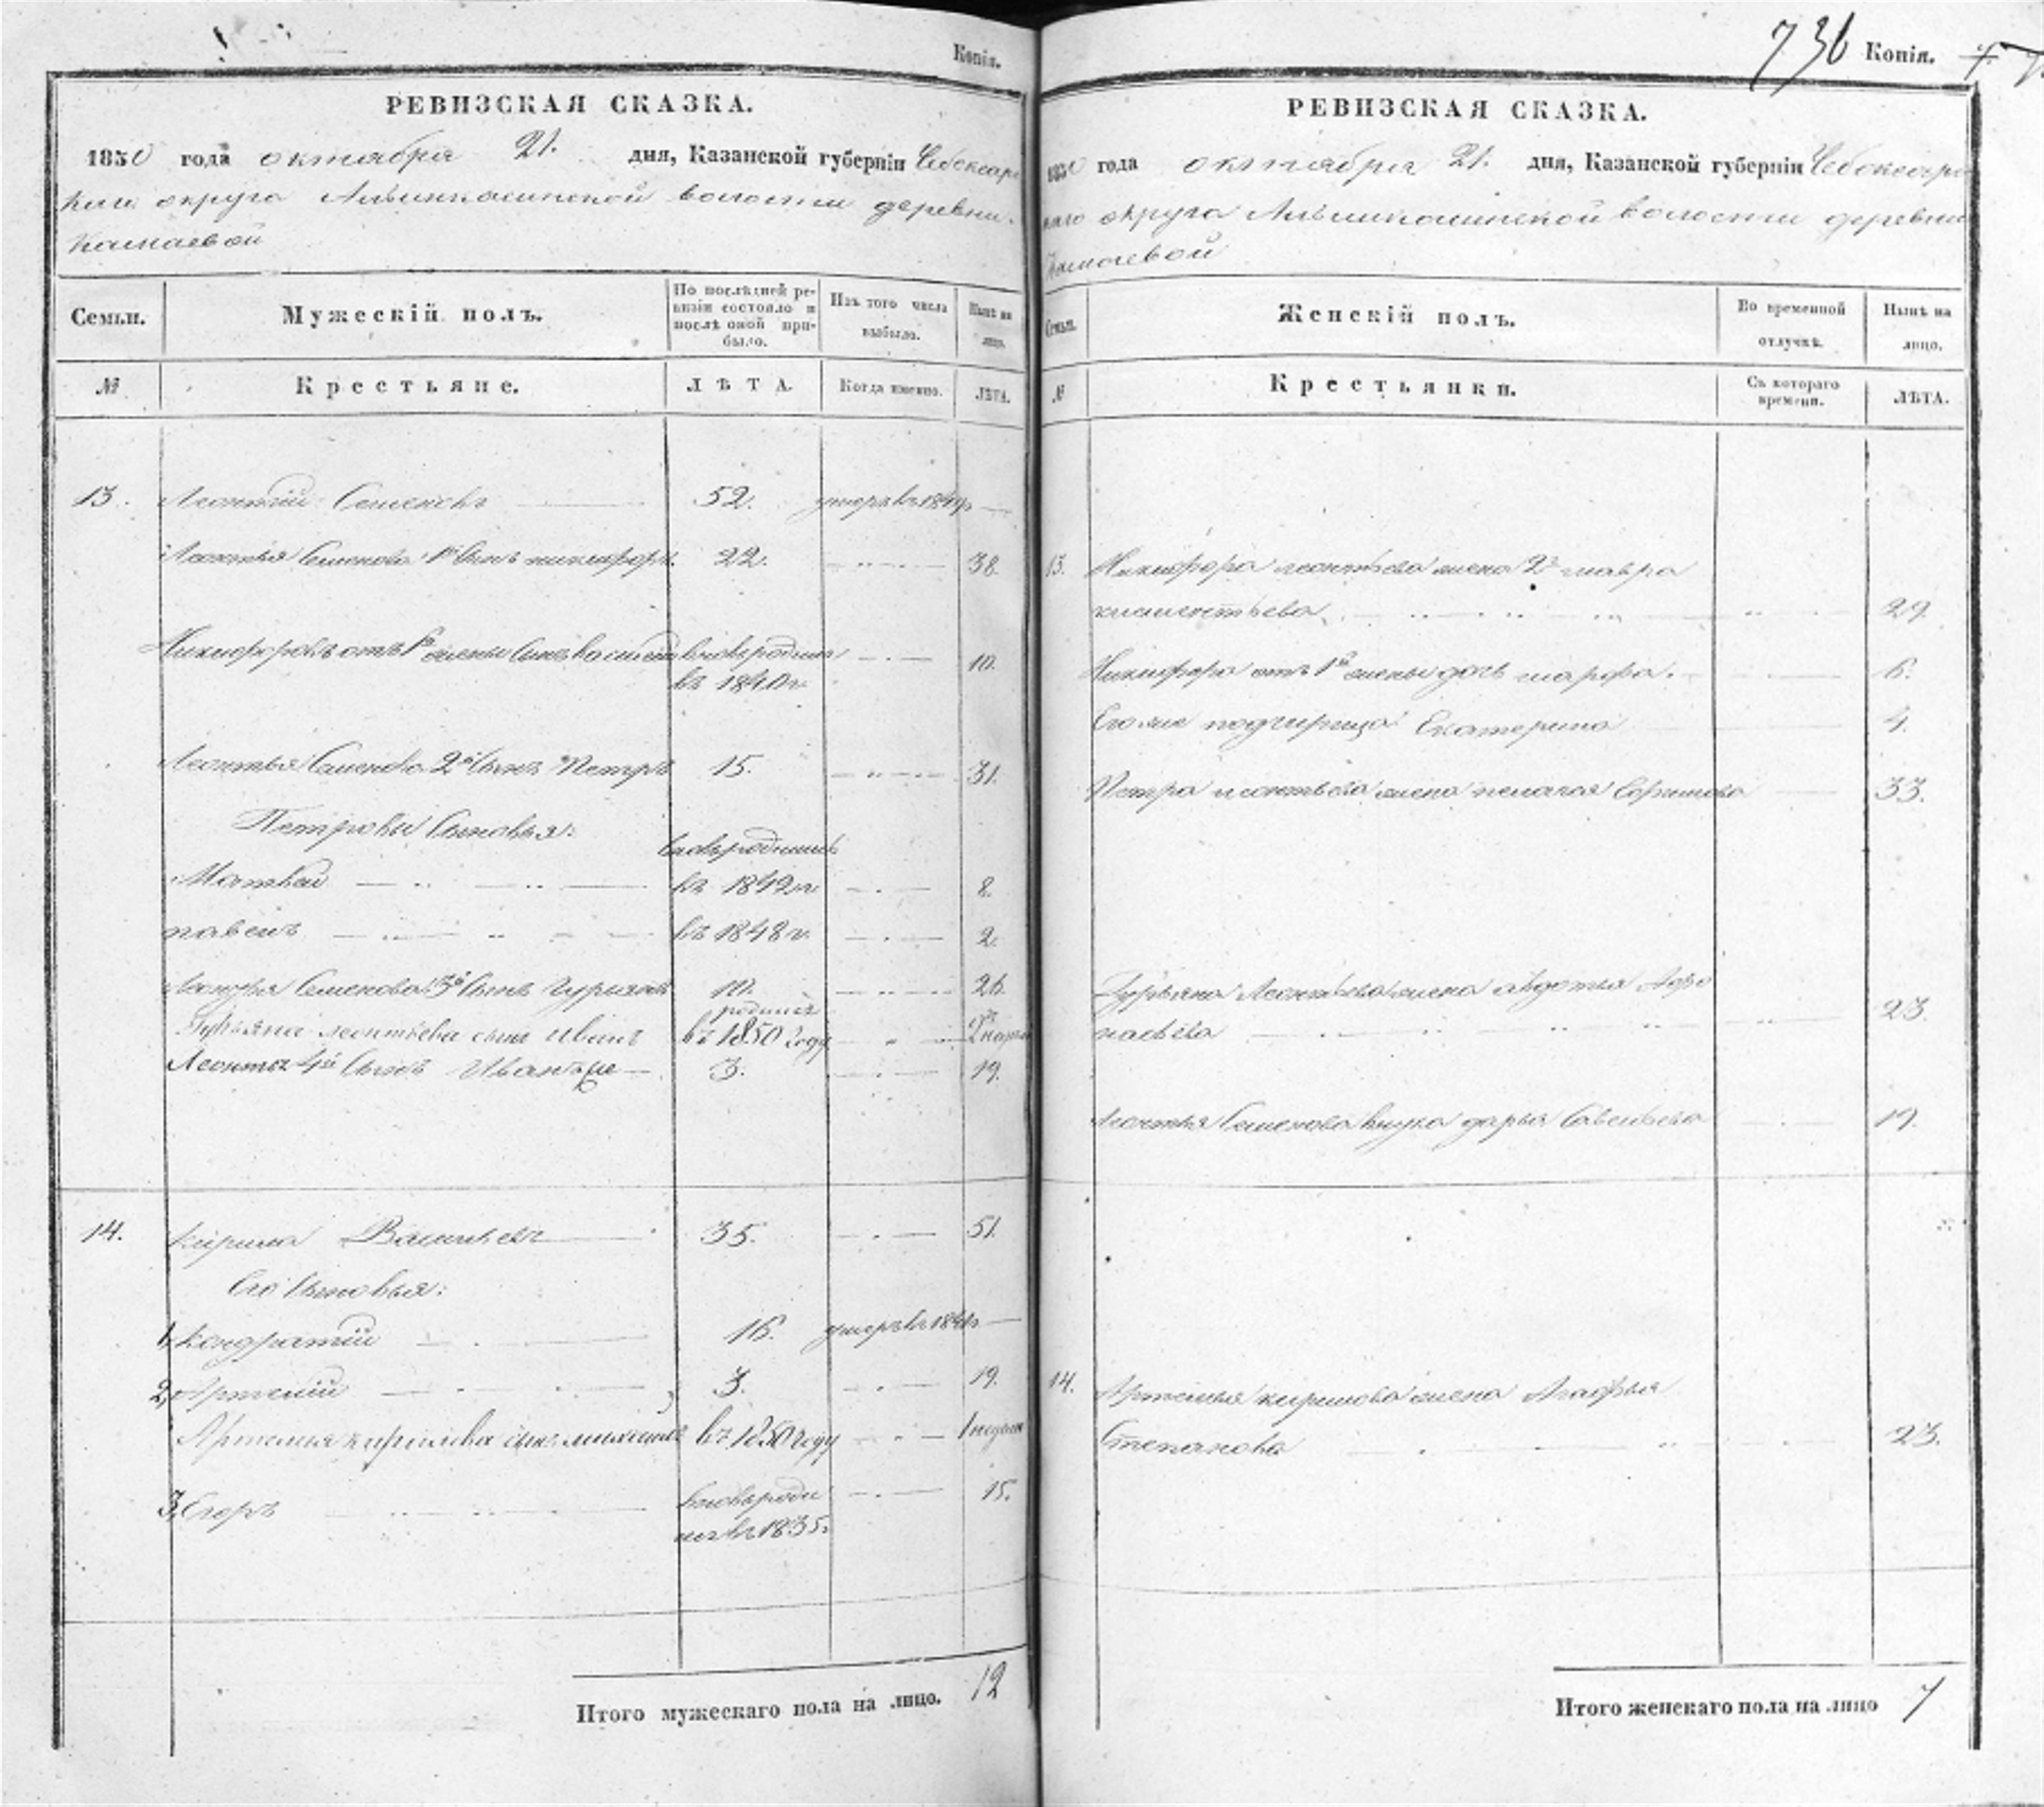 Копія.
РЕВИЗСКАЯ СКАЗКА.
1850 года октября 21. дня, Казанской губерніи Чебоксар
скаго округа волости деревни
13. Леонтій Семеновъ 52. умеръ въ 1849г
Семьи. Мужескій полъ. По послѣдней ре-
визіи состояло и
послѣ оной при-
было. Изъ того числа
выбыло. Нынѣ на
лицо.
№ Крестьяне. ЛѢТА. Когда именно. ЛѢТА.
Леонтья Семенова 1й сынъ никифоръ. 22. 38.
Никифоровъ отъ 1й жены сынъ вновь родился 10.
въ 1840г
Леонтья Семенова 2й сынъ Петръ 15. 31.
Петровы сыновья:
вновь родились
Матвей въ 1842г 8.
павелъ въ 1848г. 2.
Леонтья Семенова 3й сынъ Гурьянъ 10. 26.
родился
Гурьяна леонтьева сынъ Иванъ въ 1850 году 2
Леонтья 4й сынъ Иванъ же 3. 19.
14. Кирила Васильевъ 35. 51.
Его сыновья:
1, кондратій 16. умеръ въ
2, Артемій 3. 19.
Артемья кирилова сынъ михаилъ въ 1850 году
3, Егоръ вновь роди 15.
лся въ 1835.
Итого мужескаго пола на лицо. 12
736 Копія.
РЕВИЗСКАЯ СКАЗКА.
1850 года октября 21. дня, Казанской губерніи Чебоксарс
каго округа волости деревни
Семьи. Женскій полъ. Во временной
отлучкѣ. Нынѣ на
лицо.
№ Крестьянки. Съ котораго
времени. ЛѢТА.
13. Никифора леонтьева жена 2я мавра
29.
Никифора отъ 1й жены дочь марфа. 6.
Его же Екатерина 4.
Петра леонтьева жена пелагея Ефимова 33.
Гурьяна Леонтьева жена авдотья
23.
Леонтья Семенова внука дарья Савельева 19.
14. Артемья кирилова жена Агафья
Степанова 23.
Итого женскаго пола на лицо 7